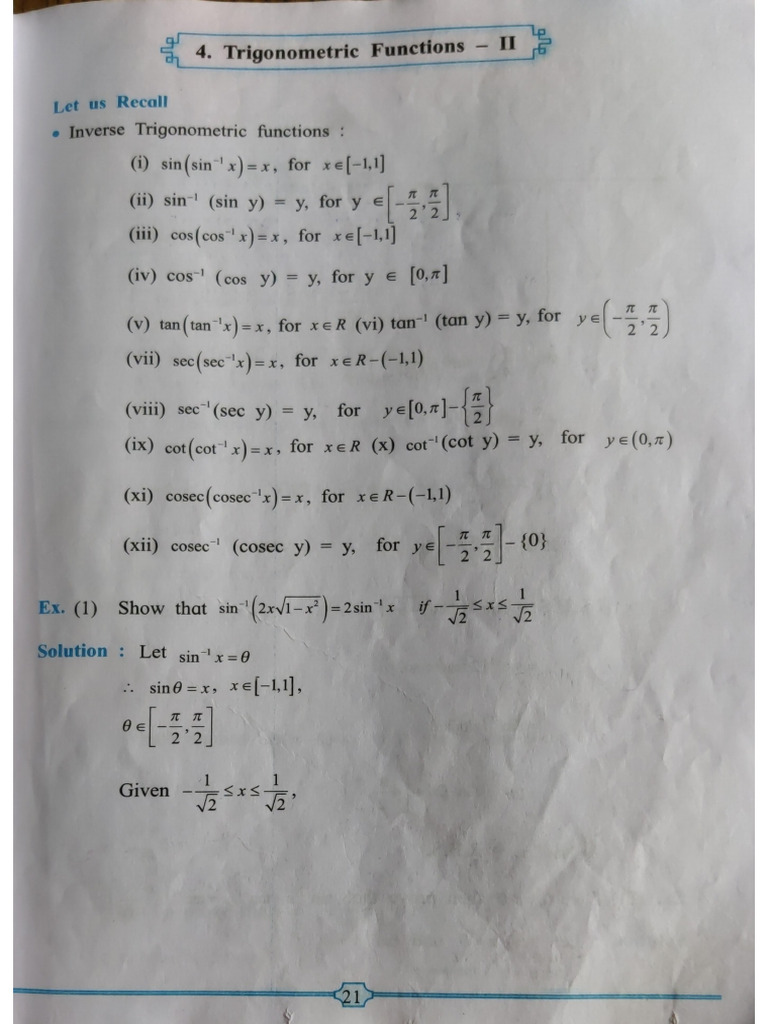 4. Trigonometric Functions – II
Let us Recall
• Inverse Trigonometric functions :
(i) sin(sin⁻¹ x) = x, for x∈[−1,1]
(ii) sin⁻¹ (sin y) = y, for y ∈ [−π/2, π/2]
(iii) cos(cos⁻¹ x) = x, for x∈[−1,1]
(iv) cos⁻¹ (cos y) = y, for y ∈ [0,π]
(v) tan(tan⁻¹x) = x, for x∈R (vi) tan⁻¹ (tan y) = y, for y∈(−π/2, π/2)
(vii) sec(sec⁻¹x) = x, for x∈R−(−1,1)
(viii) sec⁻¹(sec y) = y, for y∈[0,π]−{π/2}
(ix) cot(cot⁻¹ x) = x, for x∈R (x) cot⁻¹(cot y) = y, for y∈(0,π)
(xi) cosec(cosec⁻¹x) = x, for x∈R−(−1,1)
(xii) cosec⁻¹ (cosec y) = y, for y∈[−π/2, π/2]−{0}
Ex. (1) Show that sin⁻¹(2x√(1−x²)) = 2sin⁻¹ x if −1/√2 ≤ x ≤ 1/√2
Solution : Let sin⁻¹ x = θ
∴ sinθ = x, x∈[−1,1],
θ∈[−π/2, π/2]
Given −1/√2 ≤ x ≤ 1/√2,
21